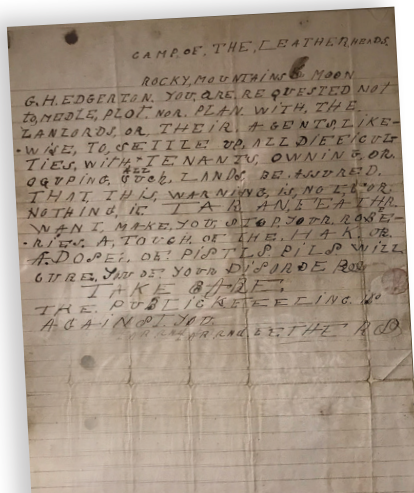 CAMP, OF, THE, LEATHER, HEADS,
ROCKY, MOUNTAINS 8 MOON
G. H. EDGERTON. YOU, ARE, REQUESTED NOT
TO, MEDLE, PLOT. NOR. PLAN. WITH, THE,
LANLORDS, OR, THEIR, AGENTS, LIKE-
-WISE, TO, SETTLE UP, ALL DIFFICUL
TIES, WITH, TENANTS, OWNING, OR,
ALL
SUCH, LANDS, BE. ASSURED.
THAT, THIS, WARNING, IS,
NOTHING, IF TAR AND FEATHR
WANT, MAKE, YOU, STOP, YOUR, ROBE-
-RIES. A, TOUCH, OF THE, OR,
A, DOSE, OF, PISTLS, PILS WILL
CURE, YOU OF YOUR
TAKE CARE,
THE, PUBLICK FEELING, IS
AGAINST, YOU.
THE